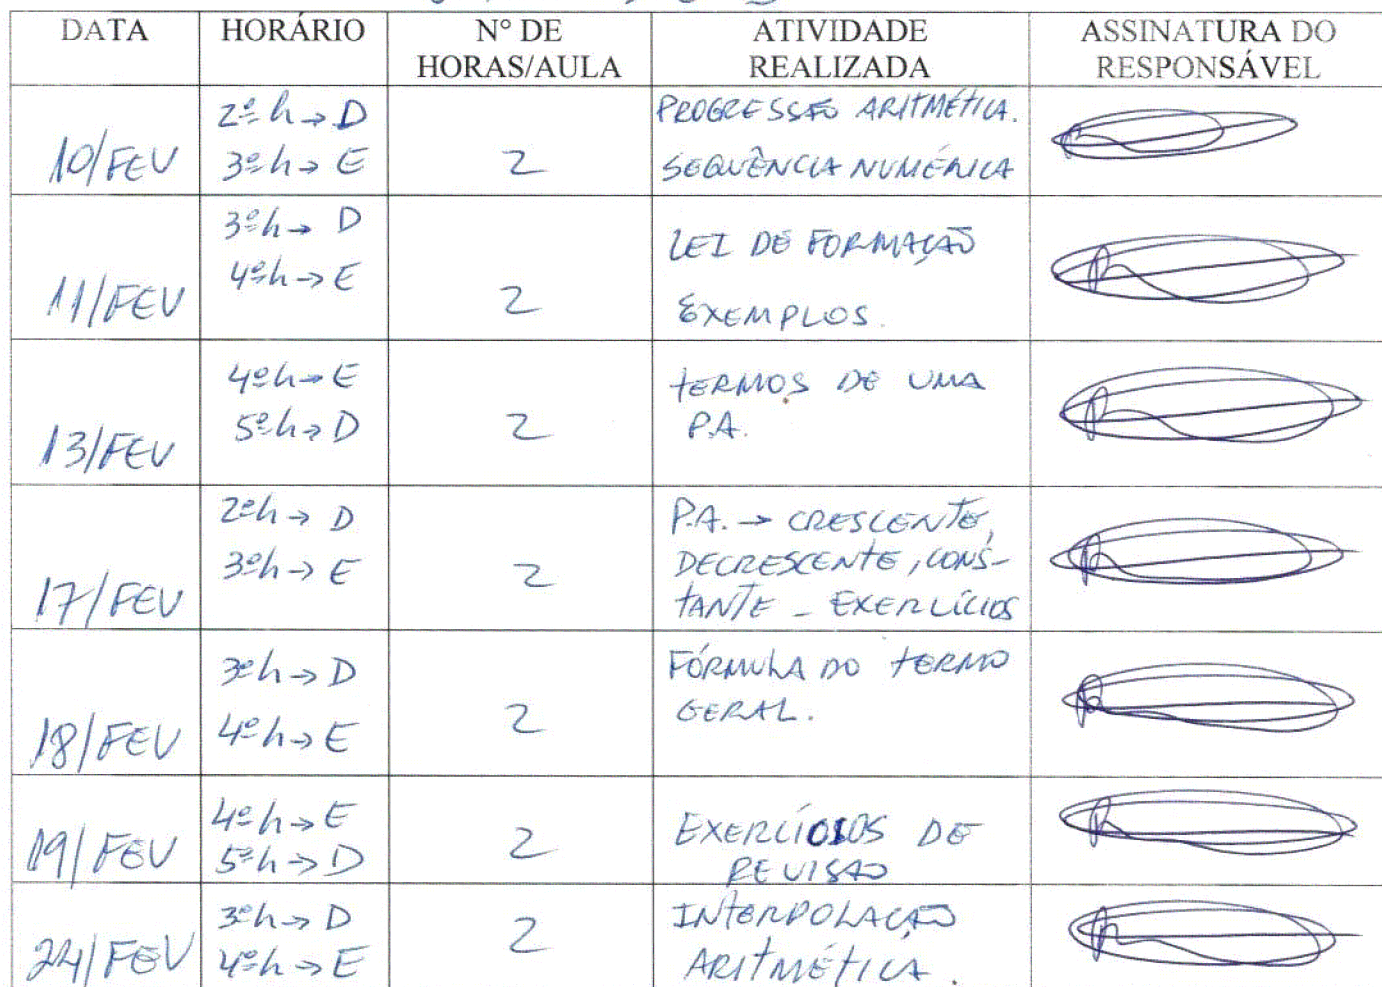 DATA HORÁRIO N° DE HORAS/AULA ATIVIDADE REALIZADA ASSINATURA DO RESPONSÁVEL
10/FEV
2º h → D
3º h → E
2
PROGRESSÃO ARITMÉTICA.
SEQUÊNCIA NUMÉRICA
11/FEV
3º h → D
4º h → E
2
LEI DE FORMAÇÃO
EXEMPLOS.
13/FEV
4º h → E
5º h → D
2
TERMOS DE UMA
P.A.
17/FEV
2º h → D
3º h → E
2
P.A. → CRESCENTE,
DECRESCENTE, CONS-
TANTE - EXERCÍCIOS
18/FEV
3º h → D
4º h → E
2
FÓRMULA DO TERMO
GERAL.
19/FEV
4º h → E
5º h → D
2
EXERCÍCIOS DE
REVISÃO
24/FEV
3º h → D
4º h → E
2
INTERPOLAÇÃO
ARITMÉTICA.